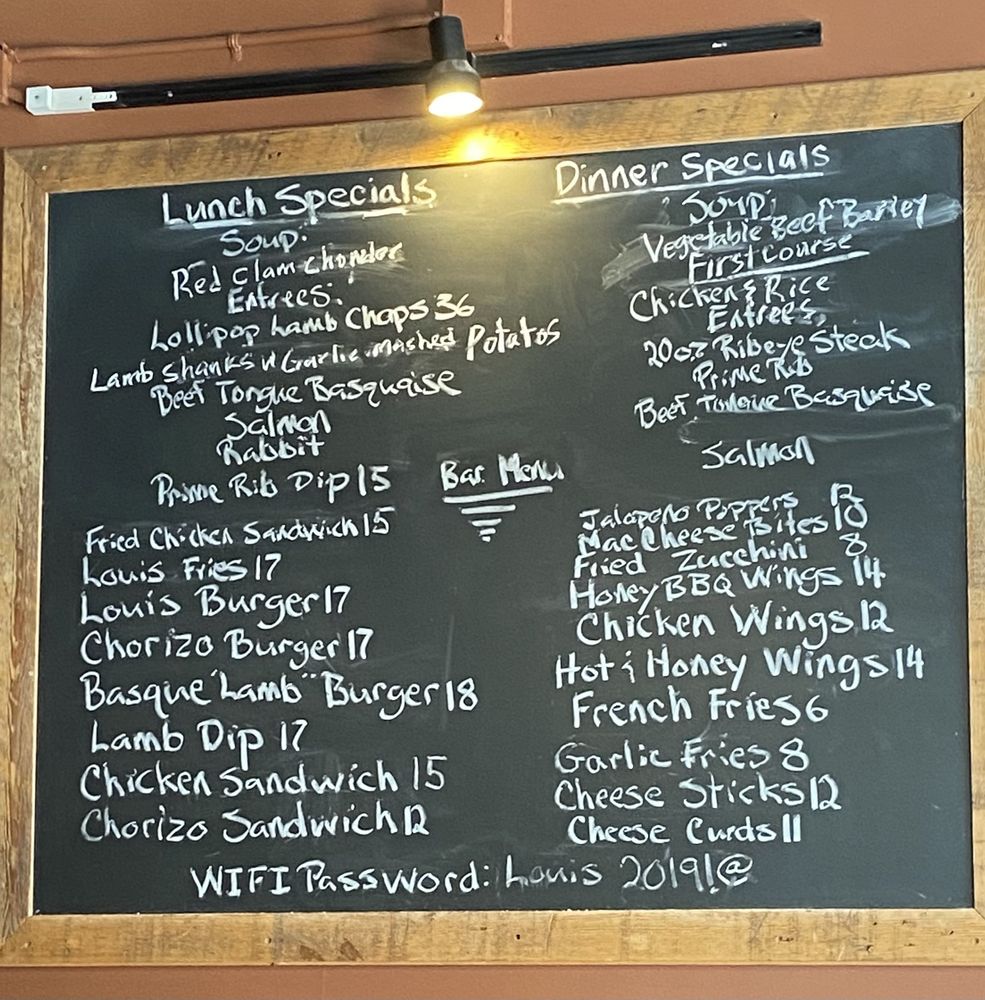 Lunch Specials
Soup:
Red Clam chowder
Entrees:
Lollipop Lamb Chops 36
Lamb Shanks w Garlic mashed Potatos
Beef Tongue Basquaise
Salmon
Rabbit
Prime Rib Dip 15
Dinner Specials
Soup:
Vegetable Beef Barley
First course
Chicken & Rice
Entrees
20oz Ribeye Steak
Prime Rib
Beef Tongue Basquaise
Salmon
Bar Menu
Fried Chicken Sandwich 15
Louis Fries 17
Louis Burger 17
Chorizo Burger 17
Basque "Lamb" Burger 18
Lamb Dip 17
Chicken Sandwich 15
Chorizo Sandwich 12
Jalapeno Poppers 12
Mac Cheese Bites 10
Fried Zucchini 8
Honey BBQ Wings 14
Chicken Wings 12
Hot & Honey Wings 14
French Fries 6
Garlic Fries 8
Cheese Sticks 12
Cheese Curds 11
WIFI Password: Louis 2019!@